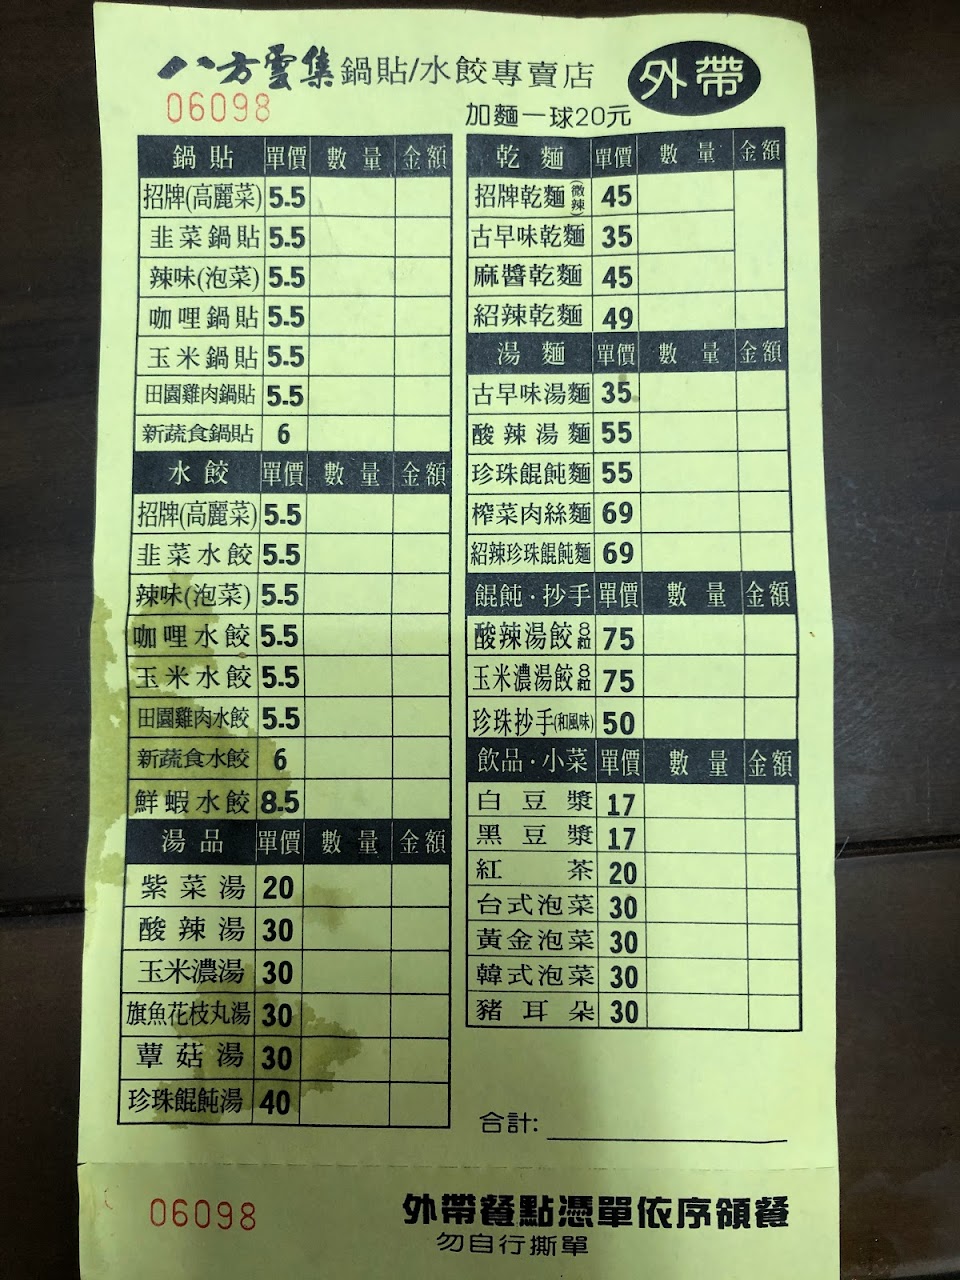 八方雲集鍋貼/水餃專賣店 外帶
06098
加麵一球20元
鍋貼 單價 數量 金額
招牌(高麗菜) 5.5
韭菜鍋貼 5.5
辣味(泡菜) 5.5
咖哩鍋貼 5.5
玉米鍋貼 5.5
田園雞肉鍋貼 5.5
新蔬食鍋貼 6
水餃 單價 數量 金額
招牌(高麗菜) 5.5
韭菜水餃 5.5
辣味(泡菜) 5.5
咖哩水餃 5.5
玉米水餃 5.5
田園雞肉水餃 5.5
新蔬食水餃 6
鮮蝦水餃 8.5
湯品 單價 數量 金額
紫菜湯 20
酸辣湯 30
玉米濃湯 30
旗魚花枝丸湯 30
蕈菇湯 30
珍珠餛飩湯 40
乾麵 單價 數量 金額
招牌乾麵(微辣) 45
古早味乾麵 35
麻醬乾麵 45
紹辣乾麵 49
湯麵 單價 數量 金額
古早味湯麵 35
酸辣湯麵 55
珍珠餛飩麵 55
榨菜肉絲麵 69
紹辣珍珠餛飩麵 69
餛飩·抄手 單價 數量 金額
酸辣湯餃8粒 75
玉米濃湯餃8粒 75
珍珠抄手(和風味) 50
飲品·小菜 單價 數量 金額
白豆漿 17
黑豆漿 17
紅茶 20
台式泡菜 30
黃金泡菜 30
韓式泡菜 30
豬耳朵 30
合計:
06098
外帶餐點憑單依序領餐
勿自行撕單